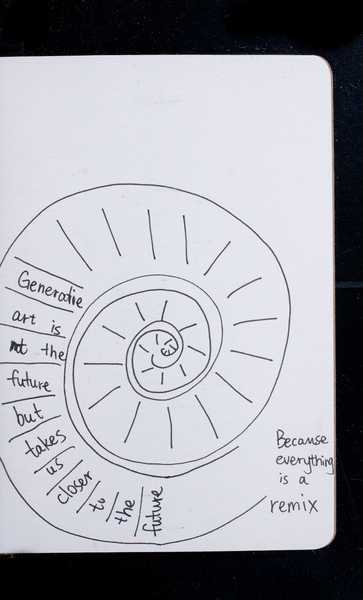 Generative
art is
not the
future
but
takes
us
closer
to
the
future
Because
everything
is a
remix